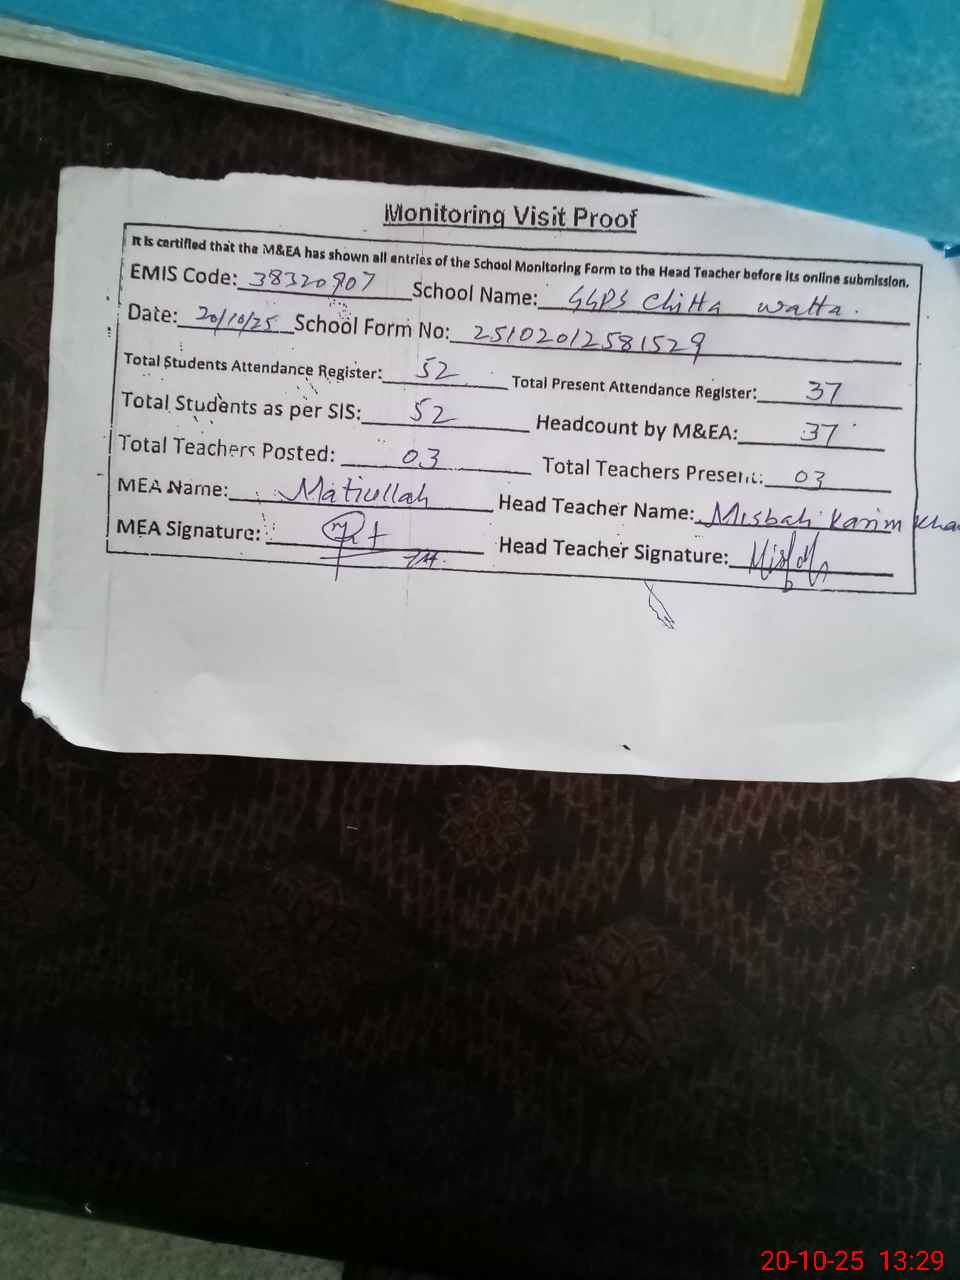 Monitoring Visit Proof
It is certified that the M&EA has shown all entries of the School Monitoring Form to the Head Teacher before its online submission.
EMIS Code: 38320907 School Name: GGPS Chitta watta.
Date: 20/10/25 School Form No: 25102012581529
Total Students Attendance Register: 52 Total Present Attendance Register: 37
Total Students as per SIS: 52 Headcount by M&EA: 37
Total Teachers Posted: 03 Total Teachers Present: 03
MEA Name: Matiullah Head Teacher Name: Misbah Karim Khan
MEA Signature: Head Teacher Signature:
20-10-25 13:29